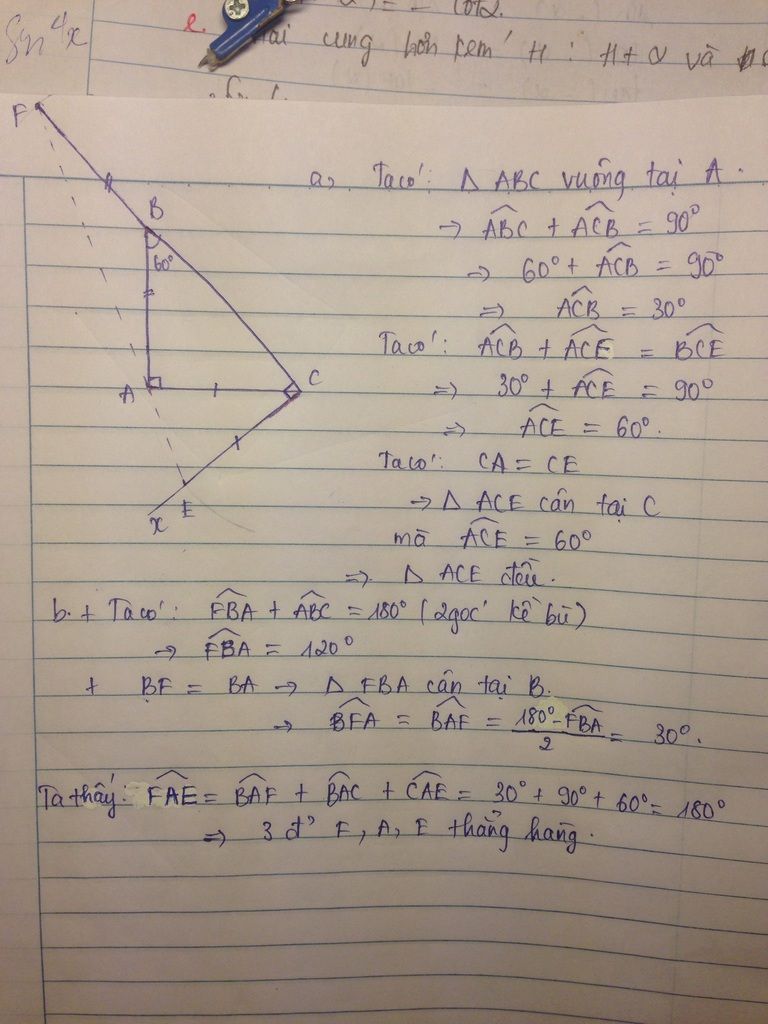 Sin⁴x
e. hai cung hơn kém H : H + α và
F
B
60°
A
C
x E
a, Ta có: Δ ABC vuông tại A.
→ ABC + ACB = 90°
→ 60° + ACB = 90°
=> ACB = 30°
Ta có: ACB + ACE = BCE
=> 30° + ACE = 90°
=> ACE = 60°.
Ta có: CA = CE
→ Δ ACE cân tại C
mà ACE = 60°
=> Δ ACE đều.
b. + Ta có: FBA + ABC = 180° (2góc kề bù)
→ FBA = 120°
+ BF = BA → Δ FBA cân tại B.
→ BFA = BAF = (180° - FBA)/2 = 30°.
Ta thấy: FAE = BAF + BAC + CAE = 30° + 90° + 60° = 180°
=> 3 đ' F, A, E thẳng hàng.